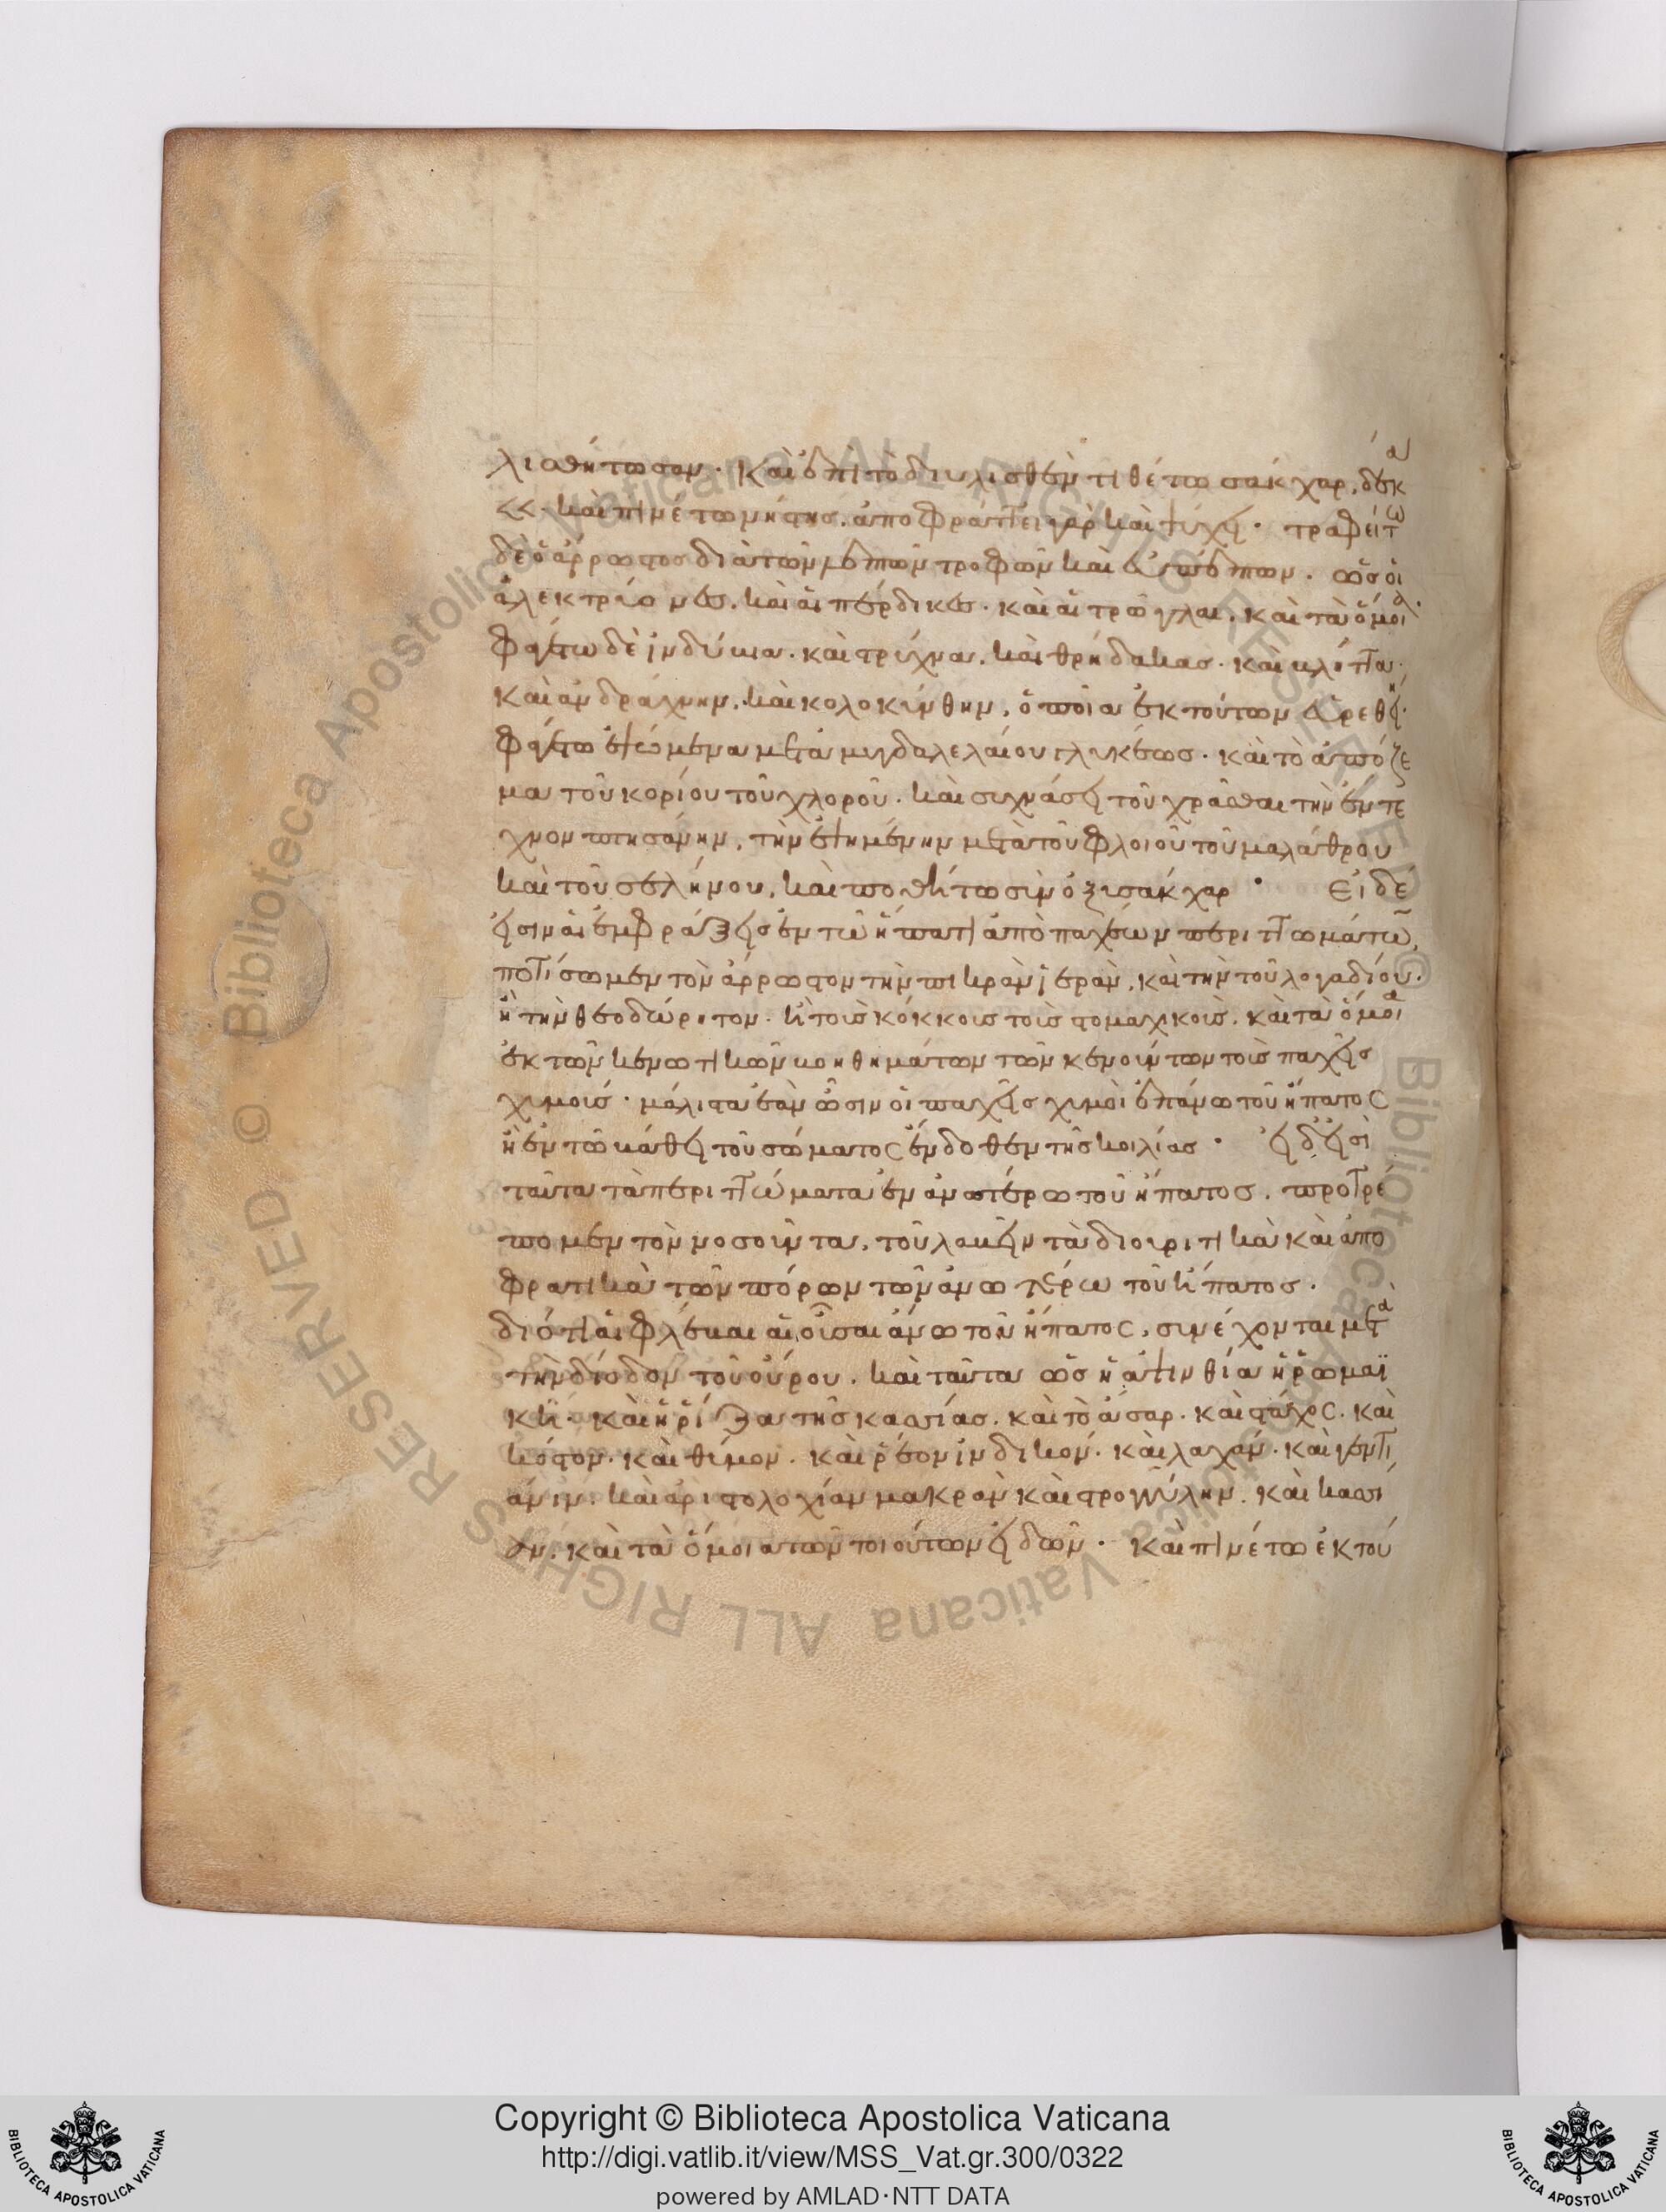 λιασθήτωσαν. καὶ ἐπὶ τὸ διυλισθὲν τιθέτω σάκχαρ, δέκα
<<. καὶ πινέτω νήστης. ἀποφράττει γὰρ καὶ ψύχει. τραφείτω
δὲ ὁ ἄρρωστος διὰ τῶν λεπτῶν τροφῶν καὶ εὐπέπτων. ὡς οἱ
ἀλεκτρυόνες. καὶ αἱ πέρδικες. καὶ αἱ τρῶγλαι. καὶ τὰ ὅμοια.
φαγέτω δὲ ἰνδύβια. καὶ στρύχνα. καὶ θρήδακας. καὶ
καὶ ἀνδράχνην. καὶ κολοκύνθην, ὁποῖα ἐκ τούτων εὑρεθείη.
φαγέτω ἑψόμενα μετὰ μυγδαλελαίου γλυκέως. καὶ τὸ ἀπόζε
μα τοῦ κορίου τοῦ χλοροῦ. καὶ συχνάσει τοῦ χρᾶσθαι τὴν ἔντε
χνον πτησάνην, τὴν ἑψημένην μετὰ τοῦ φλοιοῦ τοῦ μαλάθρου
καὶ τοῦ σελήνου, καὶ ποθήτω σὺν ὀξισάκχαρ. Εἰ δέ
εἰσιν αἱ ἐμφράξεις ἐν τῶ ἥπατι ἀπὸ παχέων περιττωμάτων,
ποτίσωμεν τὸν ἄρρωστον τὴν πικρὰν ἱερὰν, καὶ τὴν τοῦ λογαδίου.
ἢ τὴν θεοδώρητον. ἢ τοῖς κόκκοις τοῖς στομαχικοῖς. καὶ τὰ ὅμοια
ἐκ τῶν κενωτικῶν βοηθημάτων τῶν κενούντων τοῖς παχεῖς
χυμοῖς. μάλιστα ἐὰν ὦσιν οἱ παχεῖς χυμοὶ ἐπάνω τοῦ ἥπατος
ἢ ἐν τῶ βάθει τοῦ σώματος ἔνδοθεν τῆς κοιλίας. εἰ δ' εἰσὶ
ταῦτα τὰ περιττώματα ἐν ἀνωτέρω τοῦ ἥπατος. προτρέ
πομεν τὸν νοσοῦντα, τοῦ λαβεῖν τὰ διουρητικὰ καὶ ἀπο
φρατικὰ τῶν πόρων τῶν ἀνωτέρω τοῦ ἥπατος.
διότι αἱ φλέβαι αἱ οὖσαι ἄνω τοῦ ἥπατος, συνέχονται μετὰ
τὴν δίοδον τοῦ οὔρου. καὶ ταῦτα ὡς ἡ ἀψινθία ἡ ῥωμαϊ
κή. καὶ ἡ ῥίζα τῆς κασσίας. καὶ τὸ ἄσαρ. καὶ στάχος. καὶ
κόστον. καὶ θύμον. καὶ ῥέον ἰνδικόν. καὶ λαχάν. καὶ γεντι
άνιν. καὶ ἀριστολοχίαν μακρὰν καὶ στρογγύλην. καὶ
καὶ τὰ ὅμοια τῶν τοιούτων εἰδῶν. καὶ πινέτω ἐκ τού
Copyright © Biblioteca Apostolica Vaticana
http://digi.vatlib.it/view/MSS_Vat.gr.300/0322
powered by AMLAD·NTT DATA